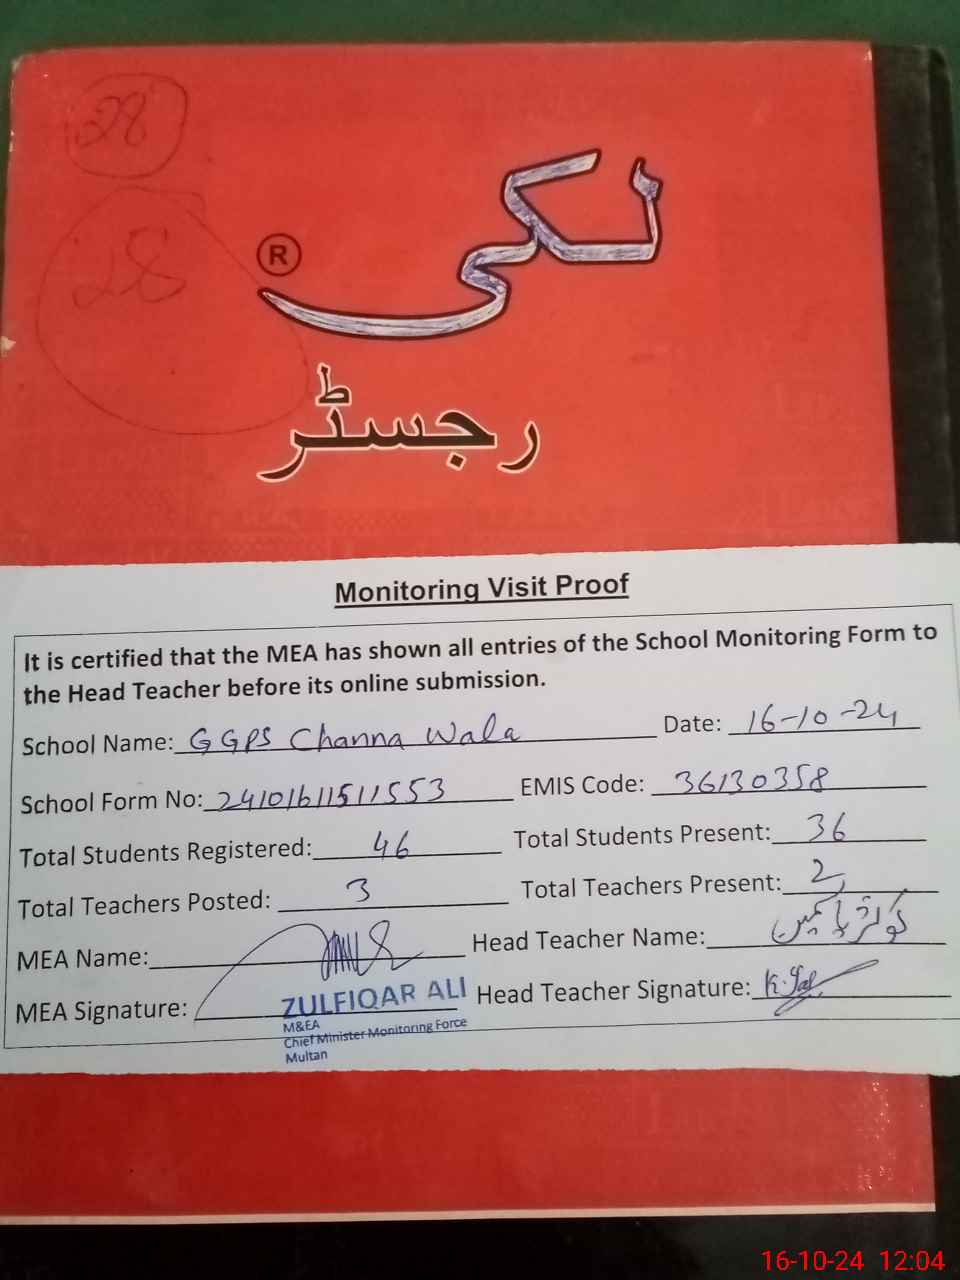 28
28
لکی
®
رجسٹر
Monitoring Visit Proof
It is certified that the MEA has shown all entries of the School Monitoring Form to
the Head Teacher before its online submission.
School Name: GGPS Channa Wala Date: 16-10-24
School Form No: 24101611511553 EMIS Code: 36130358
Total Students Registered: 46 Total Students Present: 36
Total Teachers Posted: 3 Total Teachers Present: 2
MEA Name: Head Teacher Name:
MEA Signature: Head Teacher Signature:
ZULFIQAR ALI
M&EA
Chief Minister Monitoring Force
Multan
16-10-24 12:04